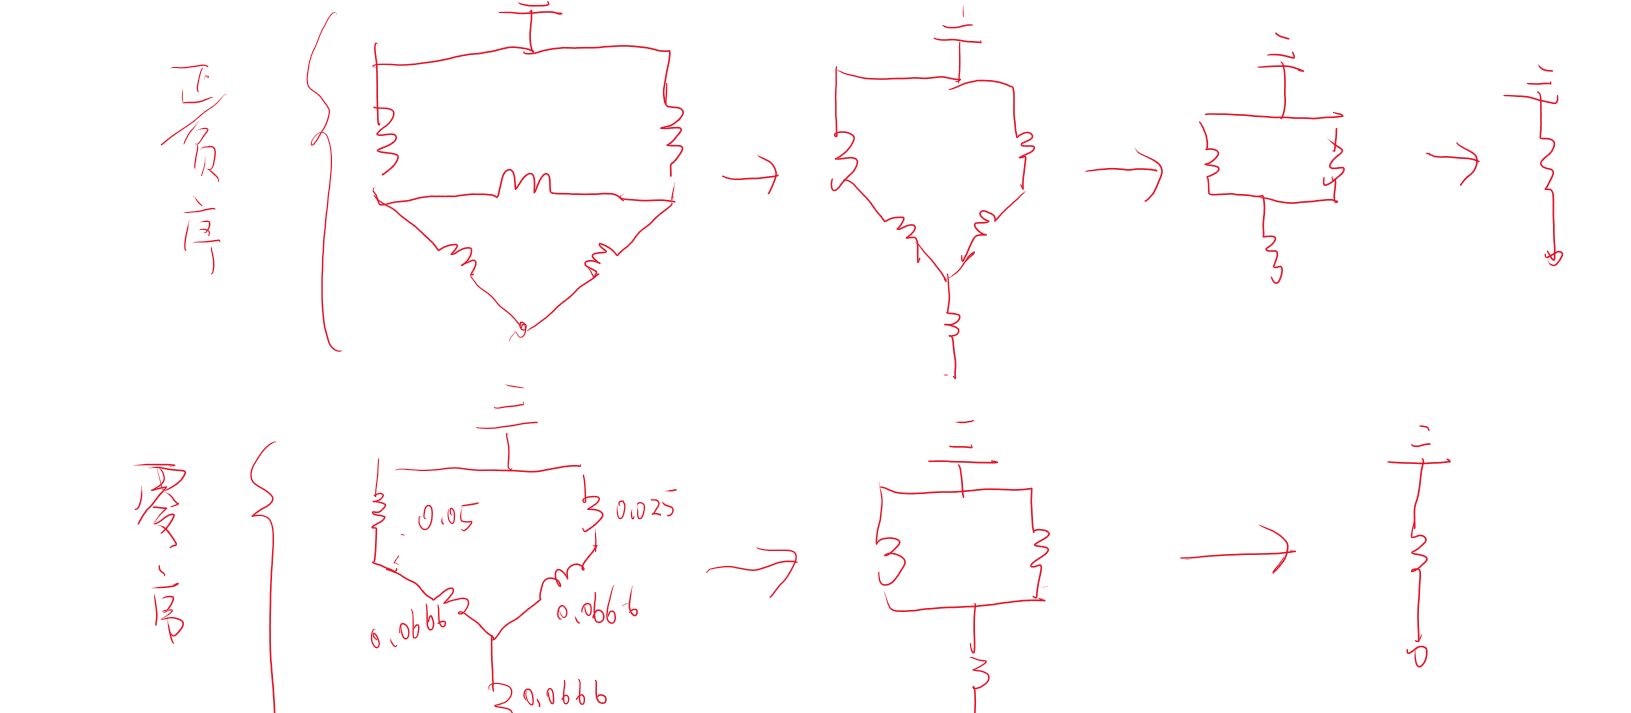 正负序
零序
0.05
0.025
0.0666
0.0666
0.0666